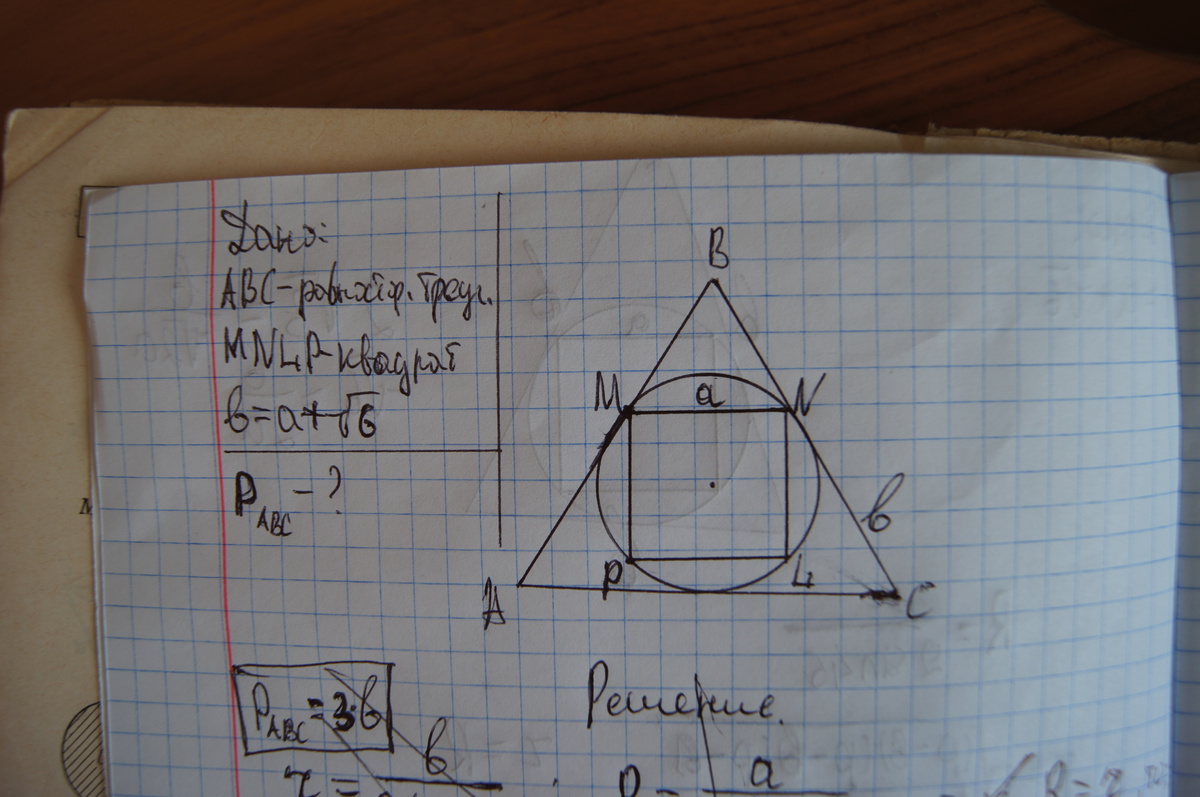 Дано:
ABC-равностор. треуг.
MNLP-квадрат
в=a+√6
P_ABC - ?
B
M
a
N
в
A
P
L
C
P_ABC = 3·в
Решение.
в
a
τ =
R =
R = τ